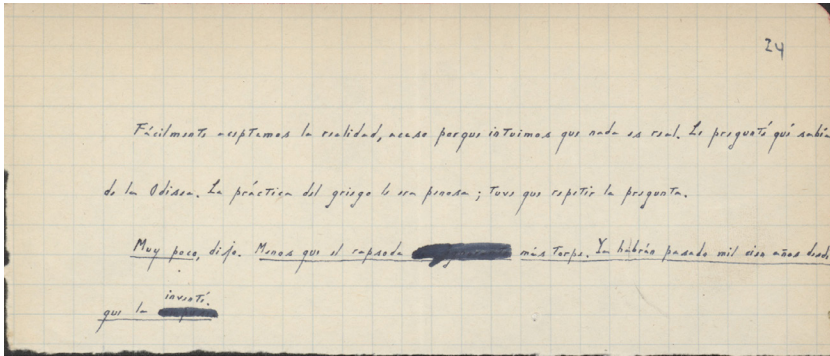 24
Fácilmente aceptamos la realidad, acaso porque intuimos que nada es real. Le pregunté qué sabía
de la Odisea. La práctica del griego le era penosa; tuve que repetir la pregunta.
Muy poco, dijo. Menos que el rapsoda más torpe. Ya habrán pasado mil cien años desde
que la inventé.